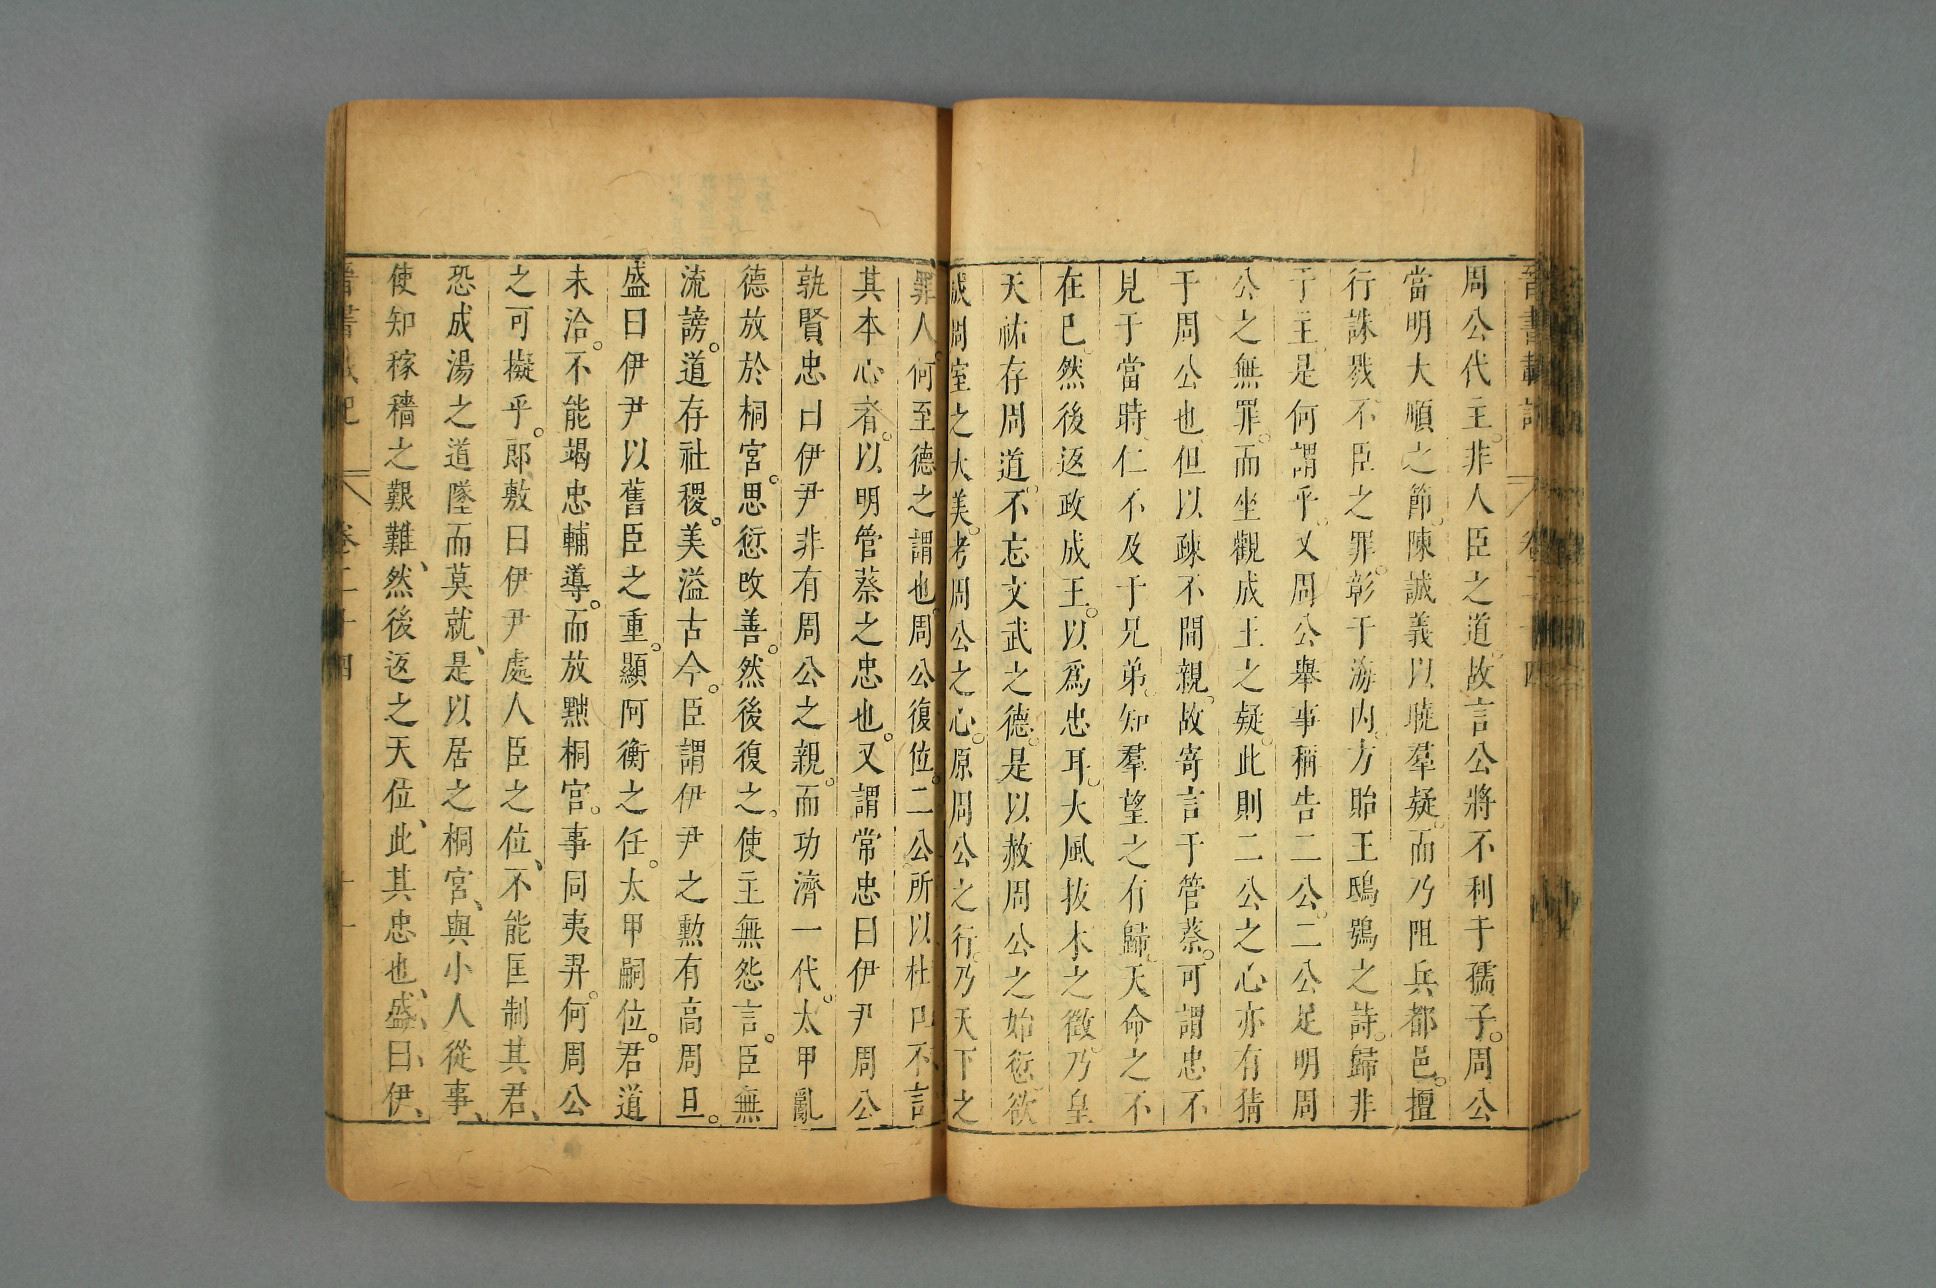 晉書載記 卷二十四
周公代主。非人臣之道。故言公將不利于孺子。周公
當明大順之節。陳誠義以曉羣疑。而乃阻兵都邑。擅
行誅戮。不臣之罪。彰于海内。方貽王鴟鴞之詩。歸非
于主。是何謂乎。又周公舉事稱告二公。二公足明周
公之無罪。而坐觀成王之疑。此則二公之心亦有猜
于周公也。但以疎不間親。故寄言于管蔡。可謂忠不
見于當時。仁不及于兄弟。知羣望之有歸。天命之不
在已。然後返政成王。以爲忠耳。大風拔木之徵。乃皇
天祐存周道。不忘文武之德。是以赦周公之始愆。欲
成周室之大美。考周公之心。原周公之行。乃天下之
罪人。何至德之謂也。周公復位。二公所以杜口不言
其本心者。以明管蔡之忠也。又謂常忠曰伊尹周公
孰賢忠曰伊尹非有周公之親。而功濟一代。太甲亂
德放於桐宮。思愆改善。然後復之。使主無怨言。臣無
流謗。道存社稷。美溢古今。臣謂伊尹之勲有高周旦。
盛曰伊尹以舊臣之重。顯阿衡之任。太甲嗣位。君道
未洽。不能竭忠輔導。而放黜桐宮。事同夷羿。何周公
之可擬乎。郎敷曰伊尹處人臣之位、不能匡制其君、
恐成湯之道墜而莫就、是以居之桐宮、與小人從事、
使知稼穡之艱難、然後返之天位、此其忠也、盛曰、伊、
晉書載記 卷二十四 十一